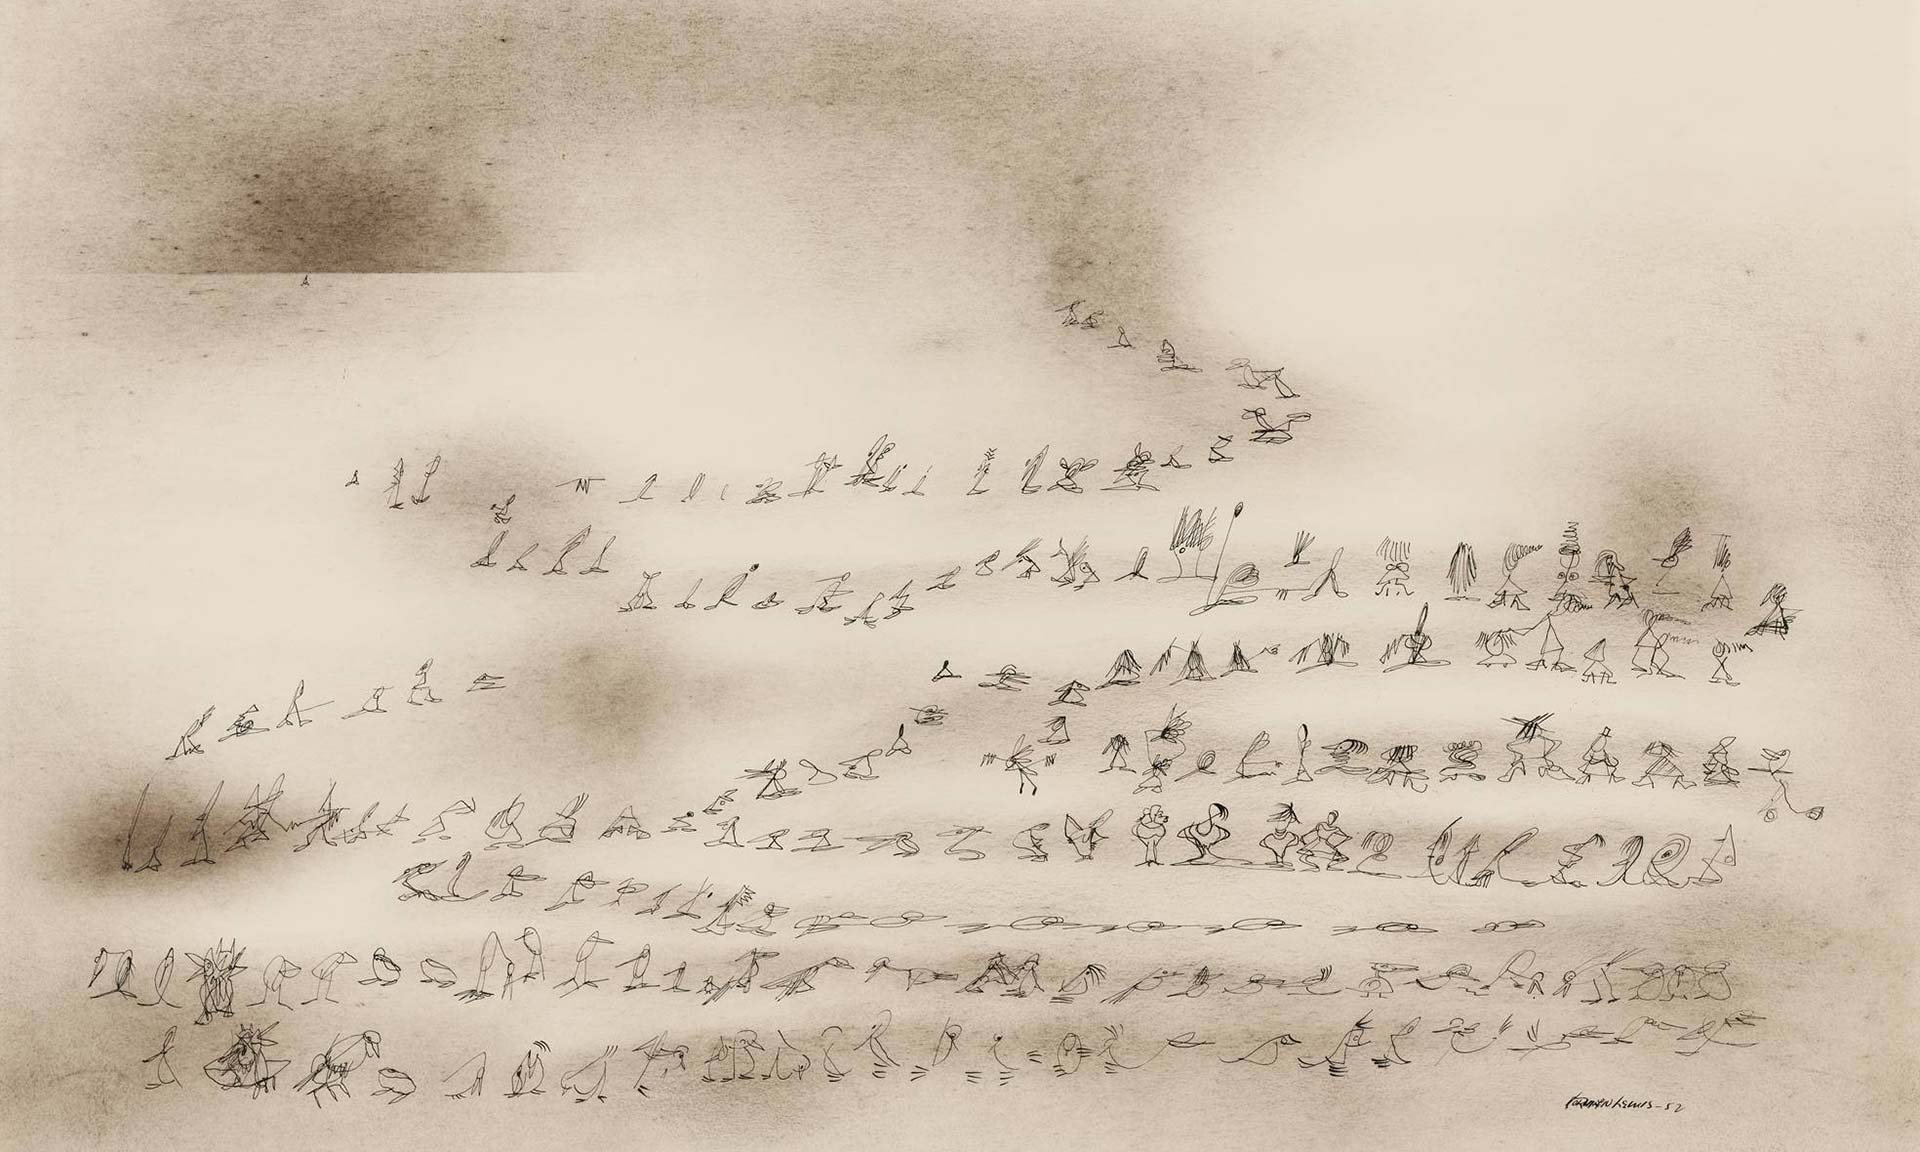 Norman Lewis-52